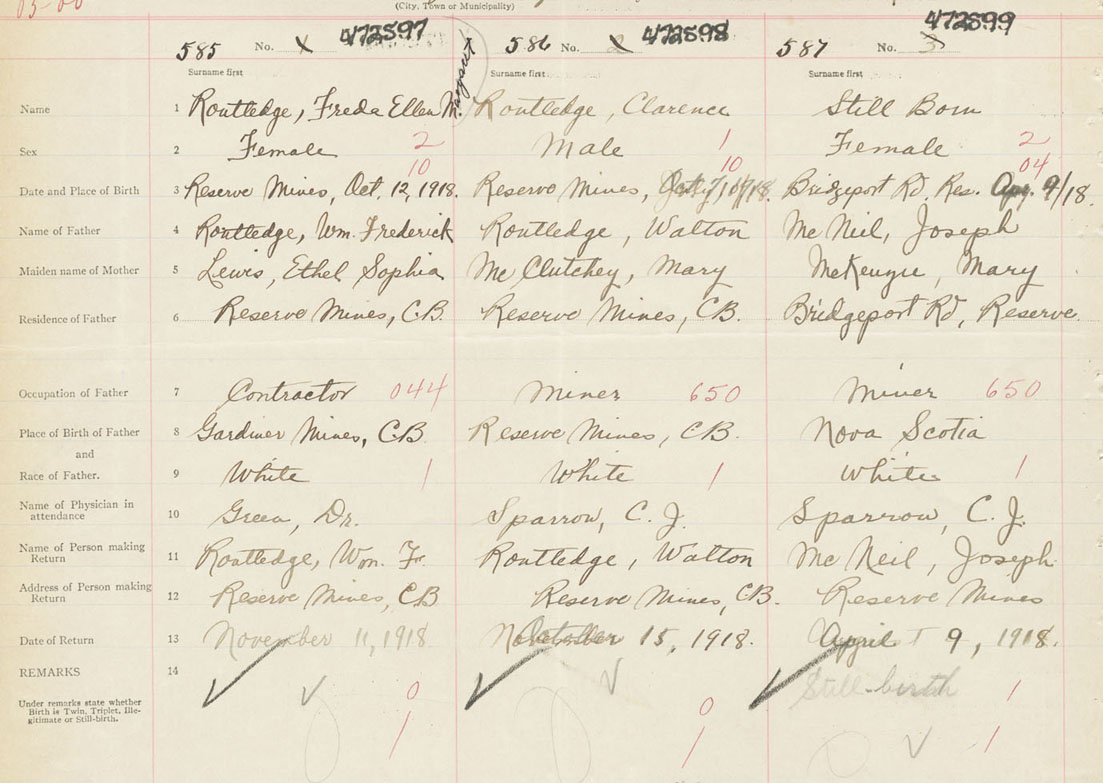 (City, Town or Municipality)
585 No. 1 472597
586 No. 2 472598
587 No. 3 472599
Surname first Surname first Surname first
Name 1 Routledge, Freda Ellen M. Margaret Routledge, Clarence Still Born
Sex 2 Female 2 Male 1 Female 2
10 10 04
Date and Place of Birth 3 Reserve Mines, Oct. 12, 1918. Reserve Mines, Bridgeport Rd. Res. Apr. 9/18.
Name of Father 4 Routledge, Wm. Frederick Routledge, Walton Mc Neil, Joseph
Maiden name of Mother 5 Lewis, Ethel Sophia Mc Clutchey, Mary McKenzie, Mary
Residence of Father 6 Reserve Mines, C.B. Reserve Mines, C.B. Bridgeport Rd, Reserve
Occupation of Father 7 Contractor 044 Miner 650 Miner 650
Place of Birth of Father 8 Gardiner Mines, C.B. Reserve Mines, C.B. Nova Scotia
and
Race of Father. 9 White 1 White 1 White 1
Name of Physician in
attendance 10 Green, Dr. Sparrow, C. J. Sparrow, C. J.
Name of Person making
Return 11 Routledge, Wm. Fr. Routledge, Walton Mc Neil, Joseph
Address of Person making
Return 12 Reserve Mines, C.B. Reserve Mines, C.B. Reserve Mines
Date of Return 13 November 11, 1918 15, 1918. April 9, 1918.
REMARKS 14 Still-birth 1
Under remarks state whether
Birth is Twin, Triplet, Ille-
gitimate or Still-birth.
0 0
1 1 1